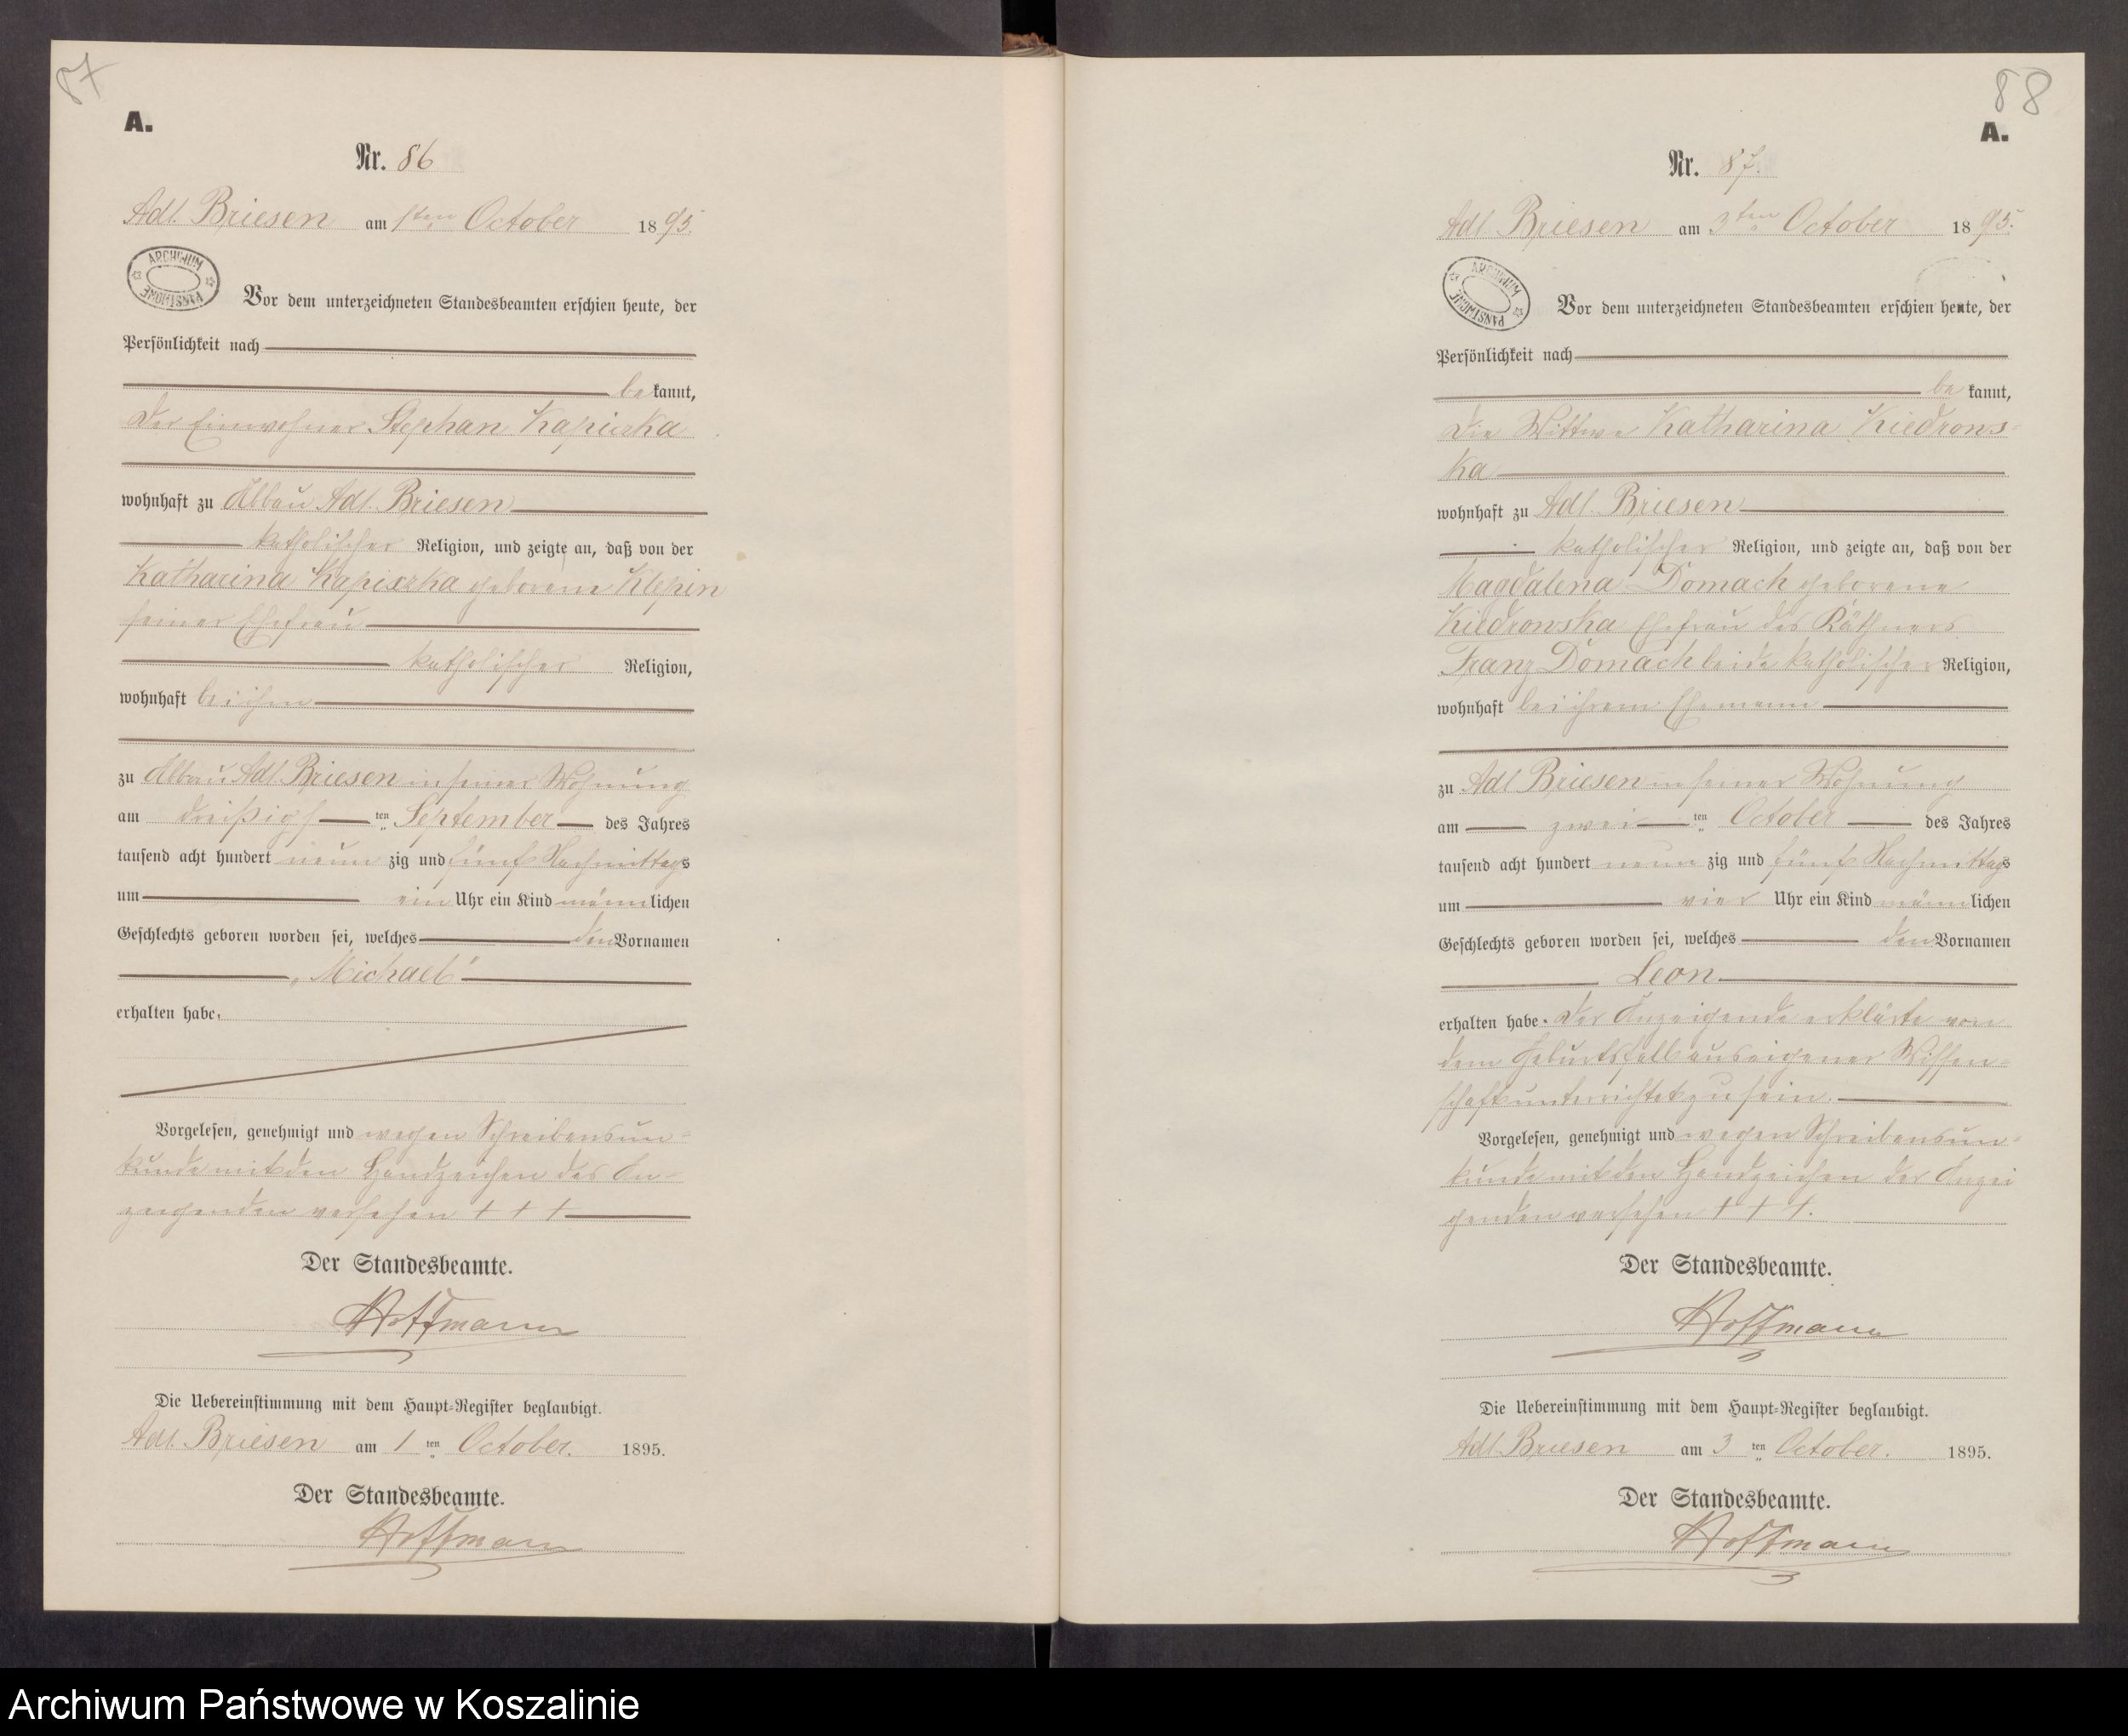 87
A.
Nr. 86
Adl. Briesen am 1ten October 1895.
ARCHIWUM PAŃSTWOWE
Vor dem unterzeichneten Standesbeamten erschien heute, der
Persönlichkeit nach
bekannt,
der Einwohner Stephan Kapiszka
wohnhaft zu Abbau Adl. Briesen
katholischer Religion, und zeigte an, daß von der
Katharina Kapiszka geborene Klepin
seiner Ehefrau
katholischer Religion,
wohnhaft bei ihm
zu Abbau Adl. Briesen in seiner Wohnung
am dreißigsten September des Jahres
tausend acht hundert neunzig und fünf Nachmittags
um ein Uhr ein Kind männlichen
Geschlechts geboren worden sei, welches den Vornamen
„Michael“
erhalten habe.
Vorgelesen, genehmigt und wegen Schreibensun-
kunde mit den Handzeichen des An-
zeigenden versehen + + +
Der Standesbeamte.
Hoffmann
Die Uebereinstimmung mit dem Haupt-Register beglaubigt.
Adl. Briesen am 1ten October. 1895.
Der Standesbeamte.
Hoffmann
88
A.
Nr. 87.
Adl. Briesen am 3ten October 1895.
ARCHIWUM PAŃSTWOWE
Vor dem unterzeichneten Standesbeamten erschien heute, der
Persönlichkeit nach
bekannt,
die Wittwe Katharina Kiedrows-
ka
wohnhaft zu Adl. Briesen
katholischer Religion, und zeigte an, daß von der
Magdalena Domach geborene
Kiedrowska Ehefrau des Käthners
Franz Domach beide katholischer Religion,
wohnhaft bei ihrem Ehemann
zu Adl. Briesen in seiner Wohnung
am zweiten October des Jahres
tausend acht hundert neunzig und fünf Nachmittags
um vier Uhr ein Kind männlichen
Geschlechts geboren worden sei, welches den Vornamen
Leon
erhalten habe. Der Anzeigende erklärte von
dem Geburtsfall aus eigener Wissen-
schaft unterrichtet zu sein.
Vorgelesen, genehmigt und wegen Schreibensun-
kunde mit den Handzeichen der Anzei
genden versehen + + +.
Der Standesbeamte.
Hoffmann
Die Uebereinstimmung mit dem Haupt-Register beglaubigt.
Adl. Briesen am 3ten October. 1895.
Der Standesbeamte.
Hoffmann
Archiwum Państwowe w Koszalinie